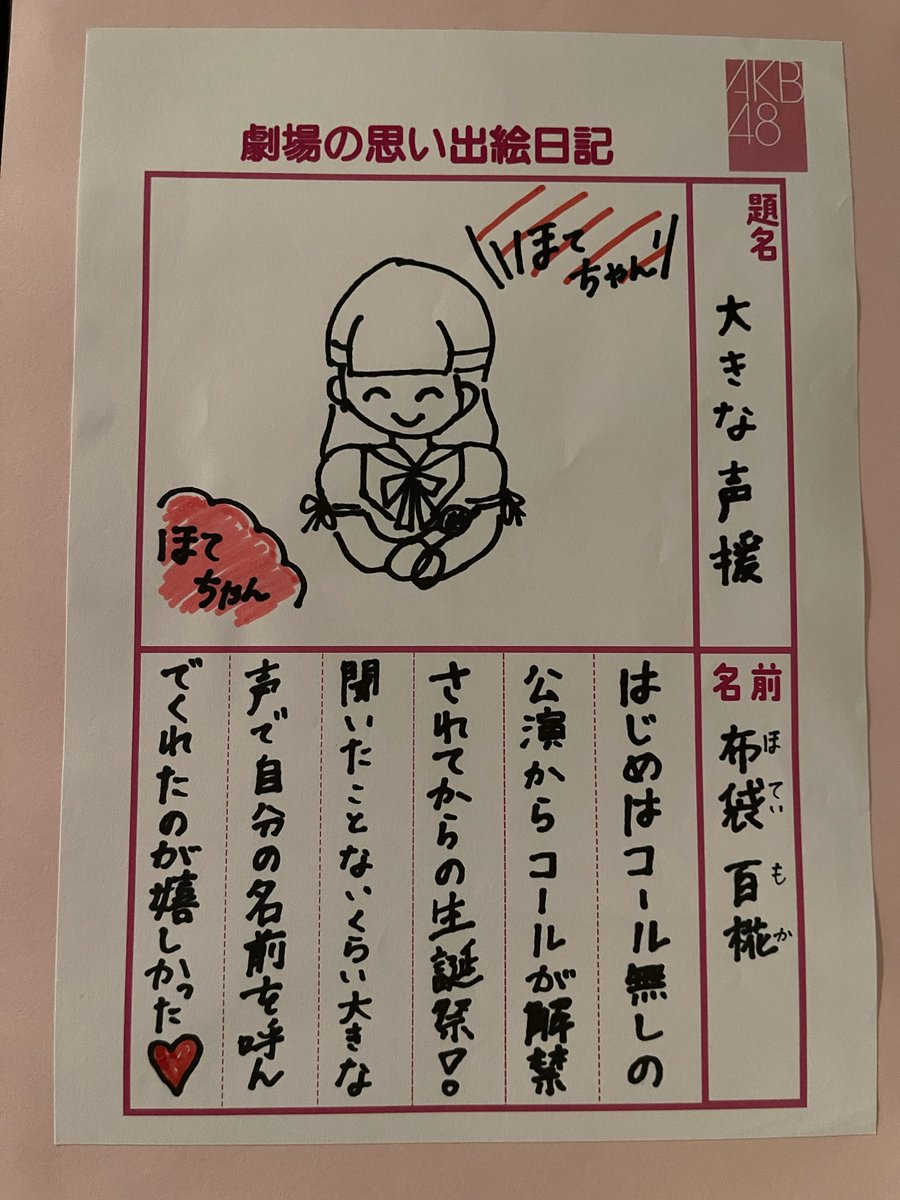 AKB
48
劇場の思い出絵日記
題名
大きな声援
名前
布袋 百椛
ほてい もか
ほて
ちゃん
ほて
ちゃん
はじめはコール無しの
公演からコールが解禁
されてからの生誕祭!。
聞いたことないくらい大きな
声で自分の名前を呼ん
でくれたのが嬉しかった